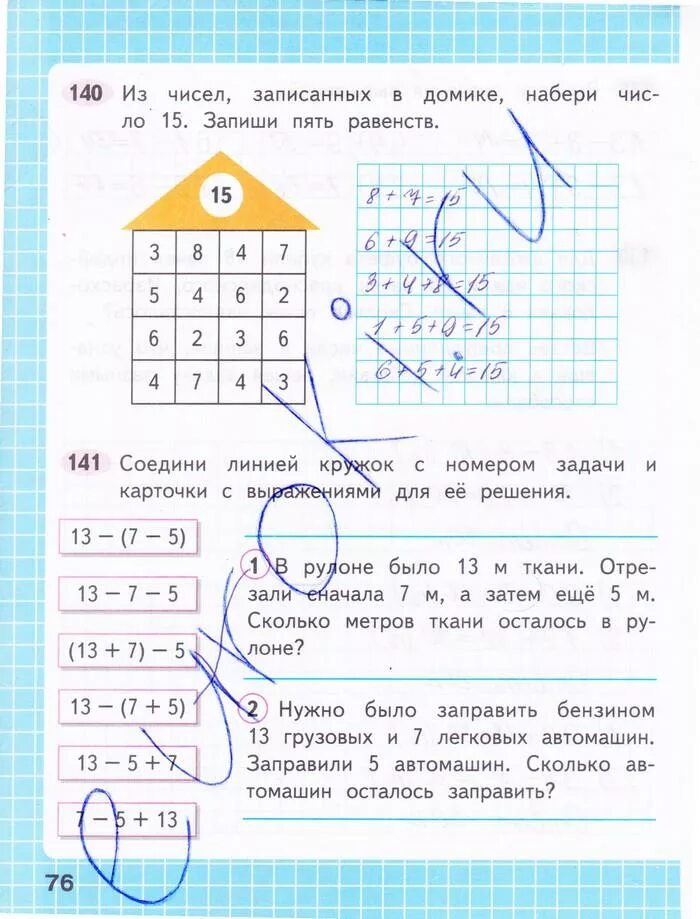 140 Из чисел, записанных в домике, набери чис-
ло 15. Запиши пять равенств.
15
3 8 4 7
5 4 6 2
6 2 3 6
4 7 4 3
8 + 7 = 15
6 + 9 = 15
3 + 4 + 8 = 15
1 + 5 + 9 = 15
6 + 5 + 4 = 15
141 Соедини линией кружок с номером задачи и
карточки с выражениями для её решения.
13 − (7 − 5)
13 − 7 − 5
(13 + 7) − 5
13 − (7 + 5)
13 − 5 + 7
7 − 5 + 13
1 В рулоне было 13 м ткани. Отре-
зали сначала 7 м, а затем ещё 5 м.
Сколько метров ткани осталось в ру-
лоне?
2 Нужно было заправить бензином
13 грузовых и 7 легковых автомашин.
Заправили 5 автомашин. Сколько ав-
томашин осталось заправить?
76